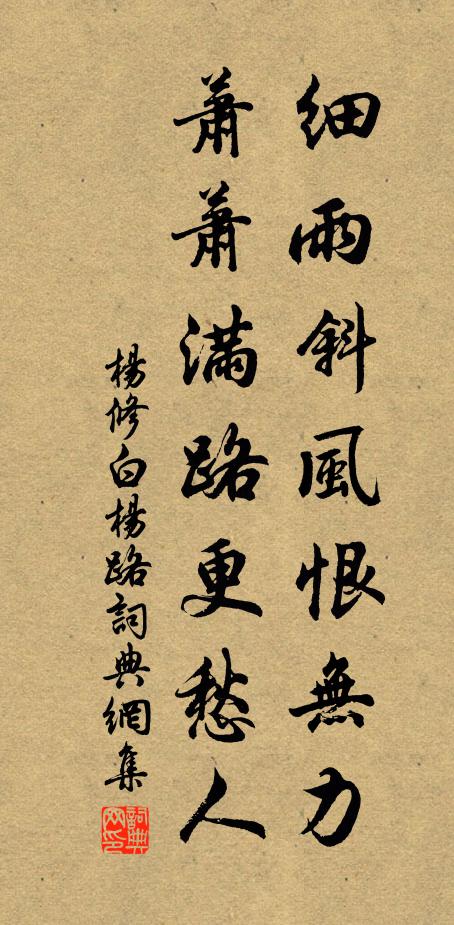 細雨斜風恨無力
蕭蕭滿路更愁人
楊修白楊路詞典網集
詞典網印